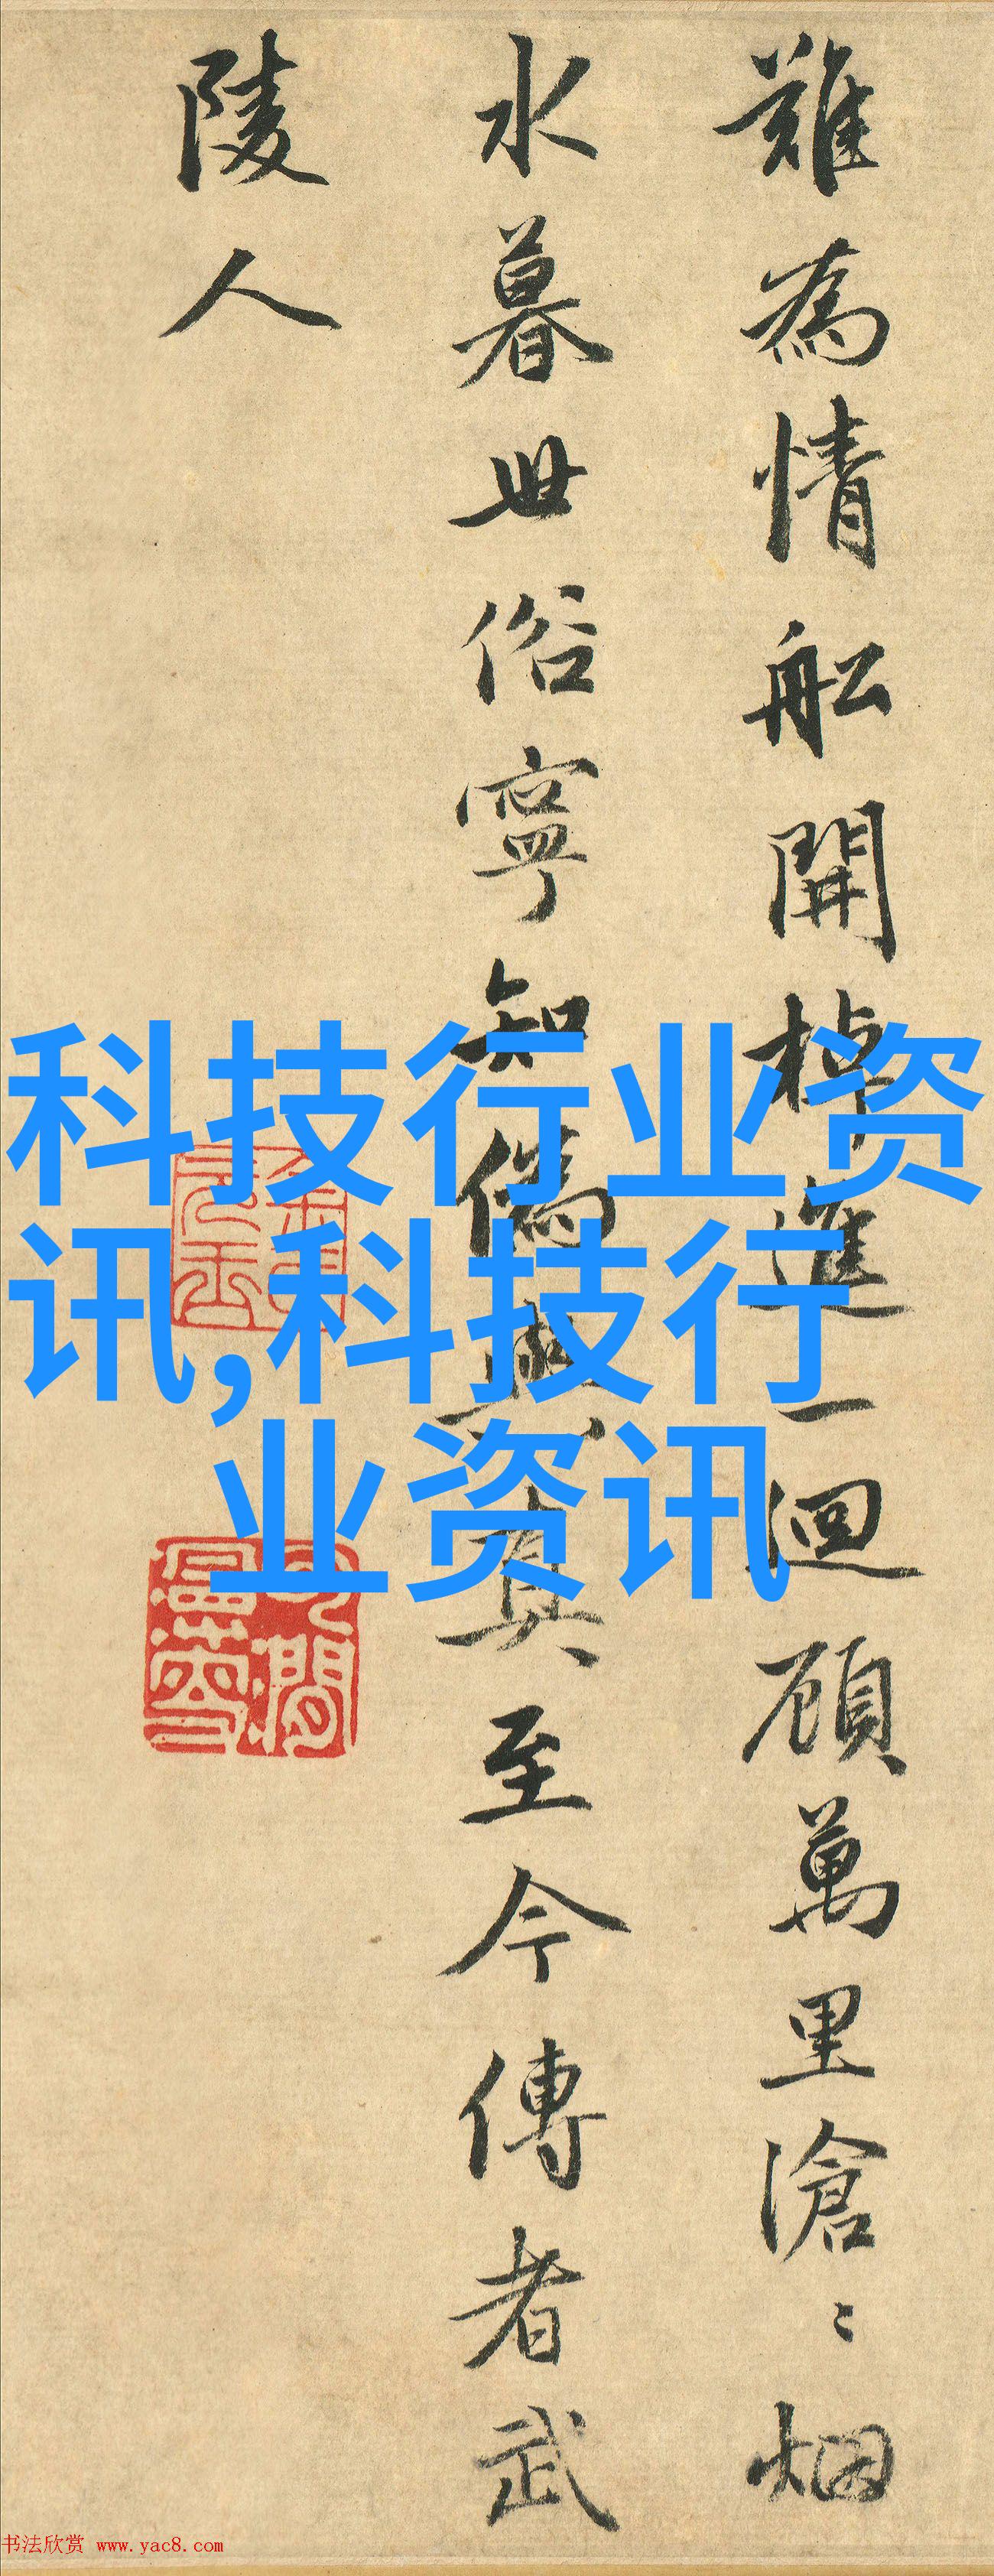 難為情船開棹進一迴顧萬里滄〻烟
水暮世俗寧知偽與真至今傳者武
陵人
科技行业资
讯,科技行
业资讯
书法欣赏 www.yac8.com